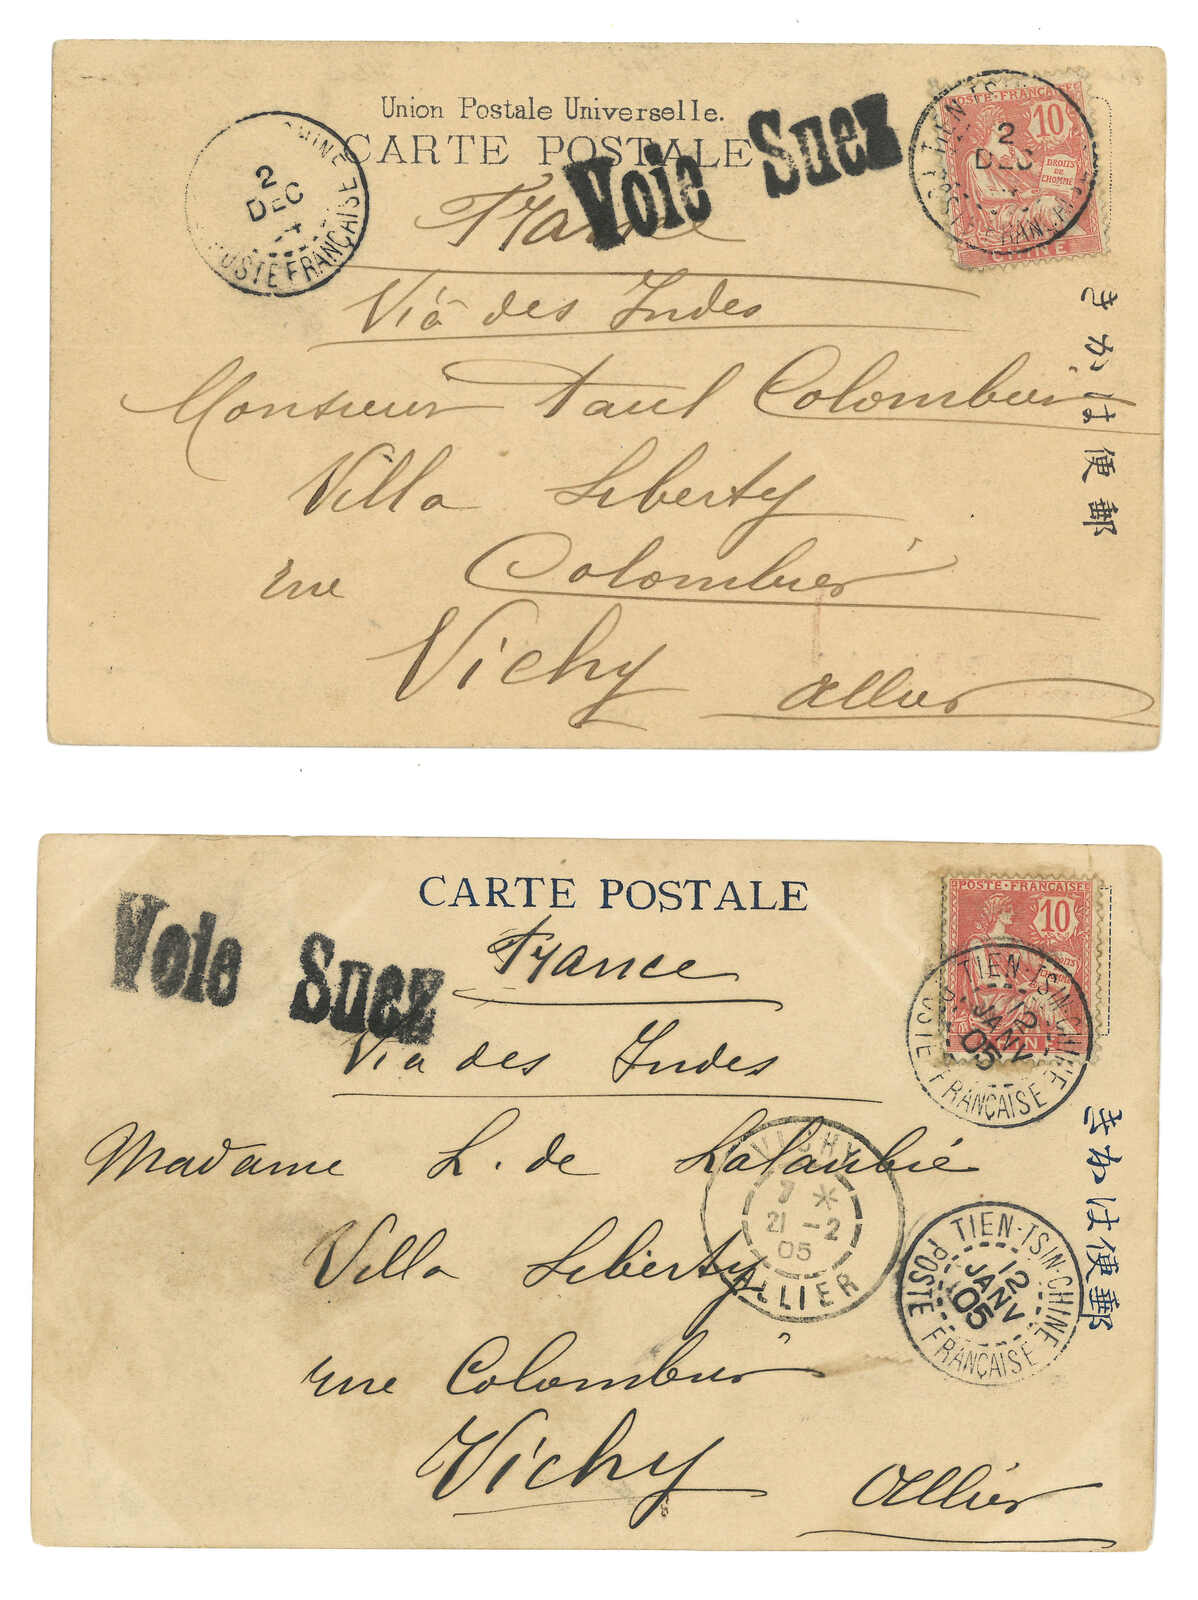 Union Postale Universelle.
CARTE POSTALE
Voie Suez
France
Viâ des Indes
Monsieur Paul Colombier
Villa Liberty
rue Colombier
Vichy
Allier
CHINE
2
DEC
POSTE FRANÇAISE
TIEN-TSIN
2
DEC
FRANÇAISE
POSTE FRANÇAISE
10
DROITS DE L'HOMME
CHINE
きかは便郵
CARTE POSTALE
Voie Suez
France
Via des Indes
Madame L. de Lalaubie
Villa Liberty
rue Colombier
Vichy
Allier
POSTE FRANÇAISE
10
CHINE
TIEN-TSIN-CHINE
12
JANV
05
POSTE FRANÇAISE
VICHY
7 *
21 -2
05
ALLIER
TIEN-TSIN-CHINE
12
JANV
05
POSTE FRANÇAISE
きかは便郵